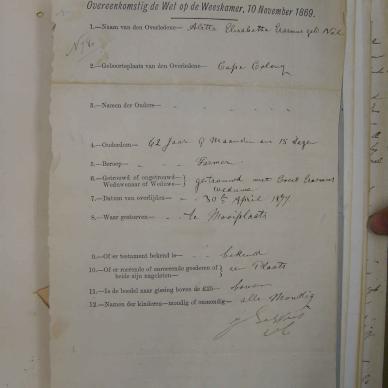 Overeenkomstig de Wet op de Weeskamer, 10 November 1869.
1.—Naam van den Overledene— Aletta Elizabetha Erasmus geb Nel
2.—Geboorteplaats van den Overledene— Cape Colony
3.—Namen der Ouders—
4.—Ouderdom— 62 Jaar 9 Maanden en 15 dagen
5.—Beroep— Farmer
6.—Getrouwd of ongetrouwd— Weduwenaar of Weduwe— getrouwd met Erasmus
Weduwe
7.—Datum van overlijden— 30 April
8.—Waar gestorven— te Mooiplaats
9.—Of er testament bekend is— bekend
10.—Of er roerende of onroerende goederen of beide zijn nagelaten— een Plaats
11.—Is de boedel naar gissing boven de £25— boven
12.—Namen der kinderen—mondig of onmondig— alle Mondig